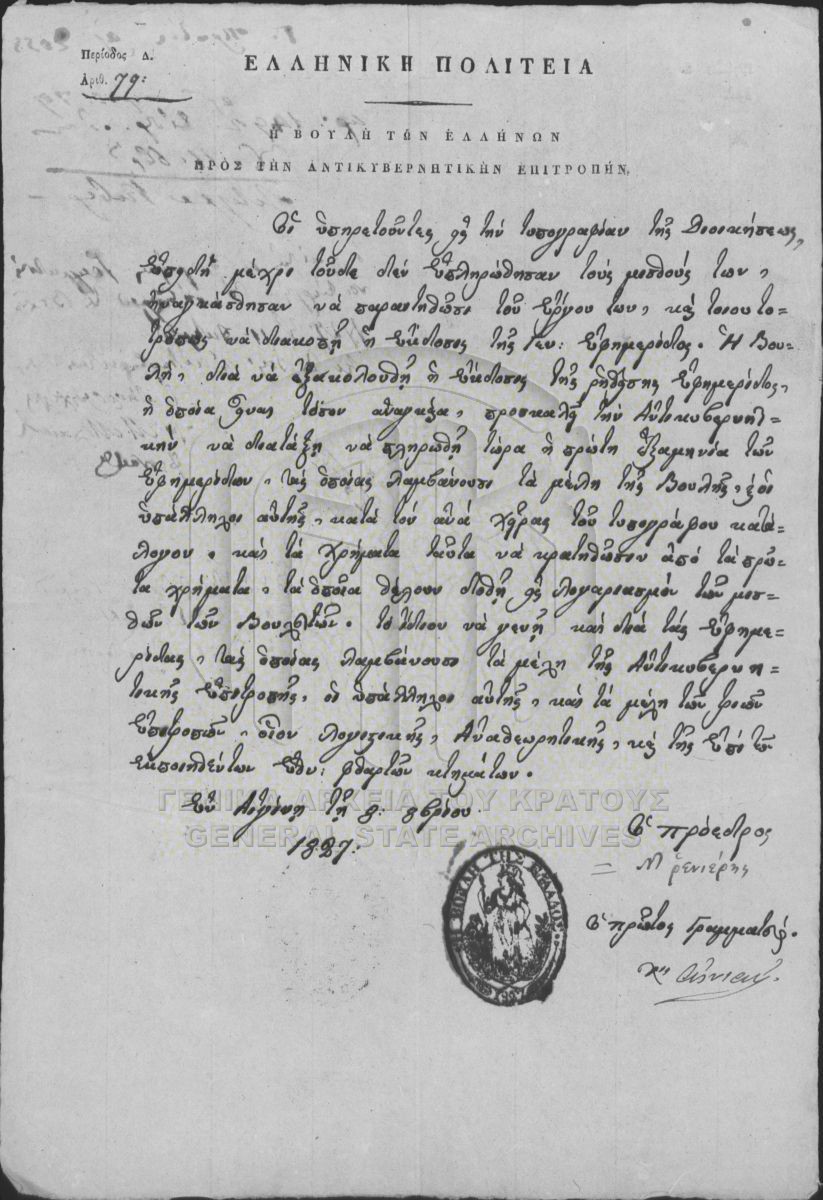 Περίοδος Δ.
Ἀριθ. 79:
ΕΛΛΗΝΙΚΗ ΠΟΛΙΤΕΙΑ
Η ΒΟΥΛΗ ΤΩΝ ΕΛΛΗΝΩΝ
ΠΡΟΣ ΤΗΝ ΑΝΤΙΚΥΒΕΡΝΗΤΙΚΗΝ ΕΠΙΤΡΟΠΗΝ,
Οἱ ὑπηρετοῦντες εἰς τὴν τυπογραφίαν τῆς Διοικήσεως,
ἐπειδὴ μέχρι τοῦδε δὲν ἐπληρώθησαν τοὺς μισθούς των,
ἠναγκάσθησαν νὰ παραιτηθῶσι τοῦ ἔργου των, καὶ τοιουτο-
τρόπως νὰ διακοπῇ ἡ ἔκδοσις τῆς Γεν: Ἐφημερίδος. Ἡ Βου-
λή, διὰ νὰ ἐξακολουθῇ ἡ ἔκδοσις τῆς ῥηθείσης Ἐφημερίδος,
ἡ ὁποία εἶναι τόσον ἀναγκαία, προσκαλεῖ τὴν Ἀντικυβερνητι-
κὴν νὰ διατάξῃ νὰ πληρωθῇ τώρα ἡ πρώτη ἑξαμηνία τῶν
ἐφημερίδων, τὰς ὁποίας λαμβάνουσι τὰ μέλη τῆς Βουλῆς, καὶ οἱ
ὑπάλληλοι αὐτῆς, κατὰ τὸν ἀνὰ χεῖρας τοῦ τυπογράφου κατά-
λογον. καὶ τὰ χρήματα ταῦτα νὰ κρατηθῶσιν ἀπὸ τὰ πρῶ-
τα χρήματα, τὰ ὁποῖα θέλουν δοθῆ εἰς λογαριασμὸν τῶν μισ-
θῶν τῶν Βουλευτῶν. τὸ ἴδιον νὰ γενῇ καὶ διὰ τὰς ἐφημε-
ρίδας, τὰς ὁποίας λαμβάνουσι τὰ μέλη τῆς Ἀντικυβερνη-
τικῆς Ἐπιτροπῆς, οἱ ὑπάλληλοι αὐτῆς, καὶ τὰ μέλη τῶν τριῶν
ἐπιτροπῶν, οἷον λογιστικῆς, Ἀναθεωρητικῆς, καὶ τῆς ἐπὶ τῶν
ἐκποιηθέντων ἐθν: φθαρτῶν κτημάτων.
Ἐν Αἰγίνῃ τῇ 8: 9βρίου
1827:
Ὁ πρόεδρος
Ν Ρενιέρης
Ὁ πρῶτος Γραμματεύς.
Η ΒΟΥΛΗ ΤΗΣ ΕΛΛΑΔΟΣ
1827
ΓΕΝΙΚΑ ΑΡΧΕΙΑ ΤΟΥ ΚΡΑΤΟΥΣ
GENERAL STATE ARCHIVES